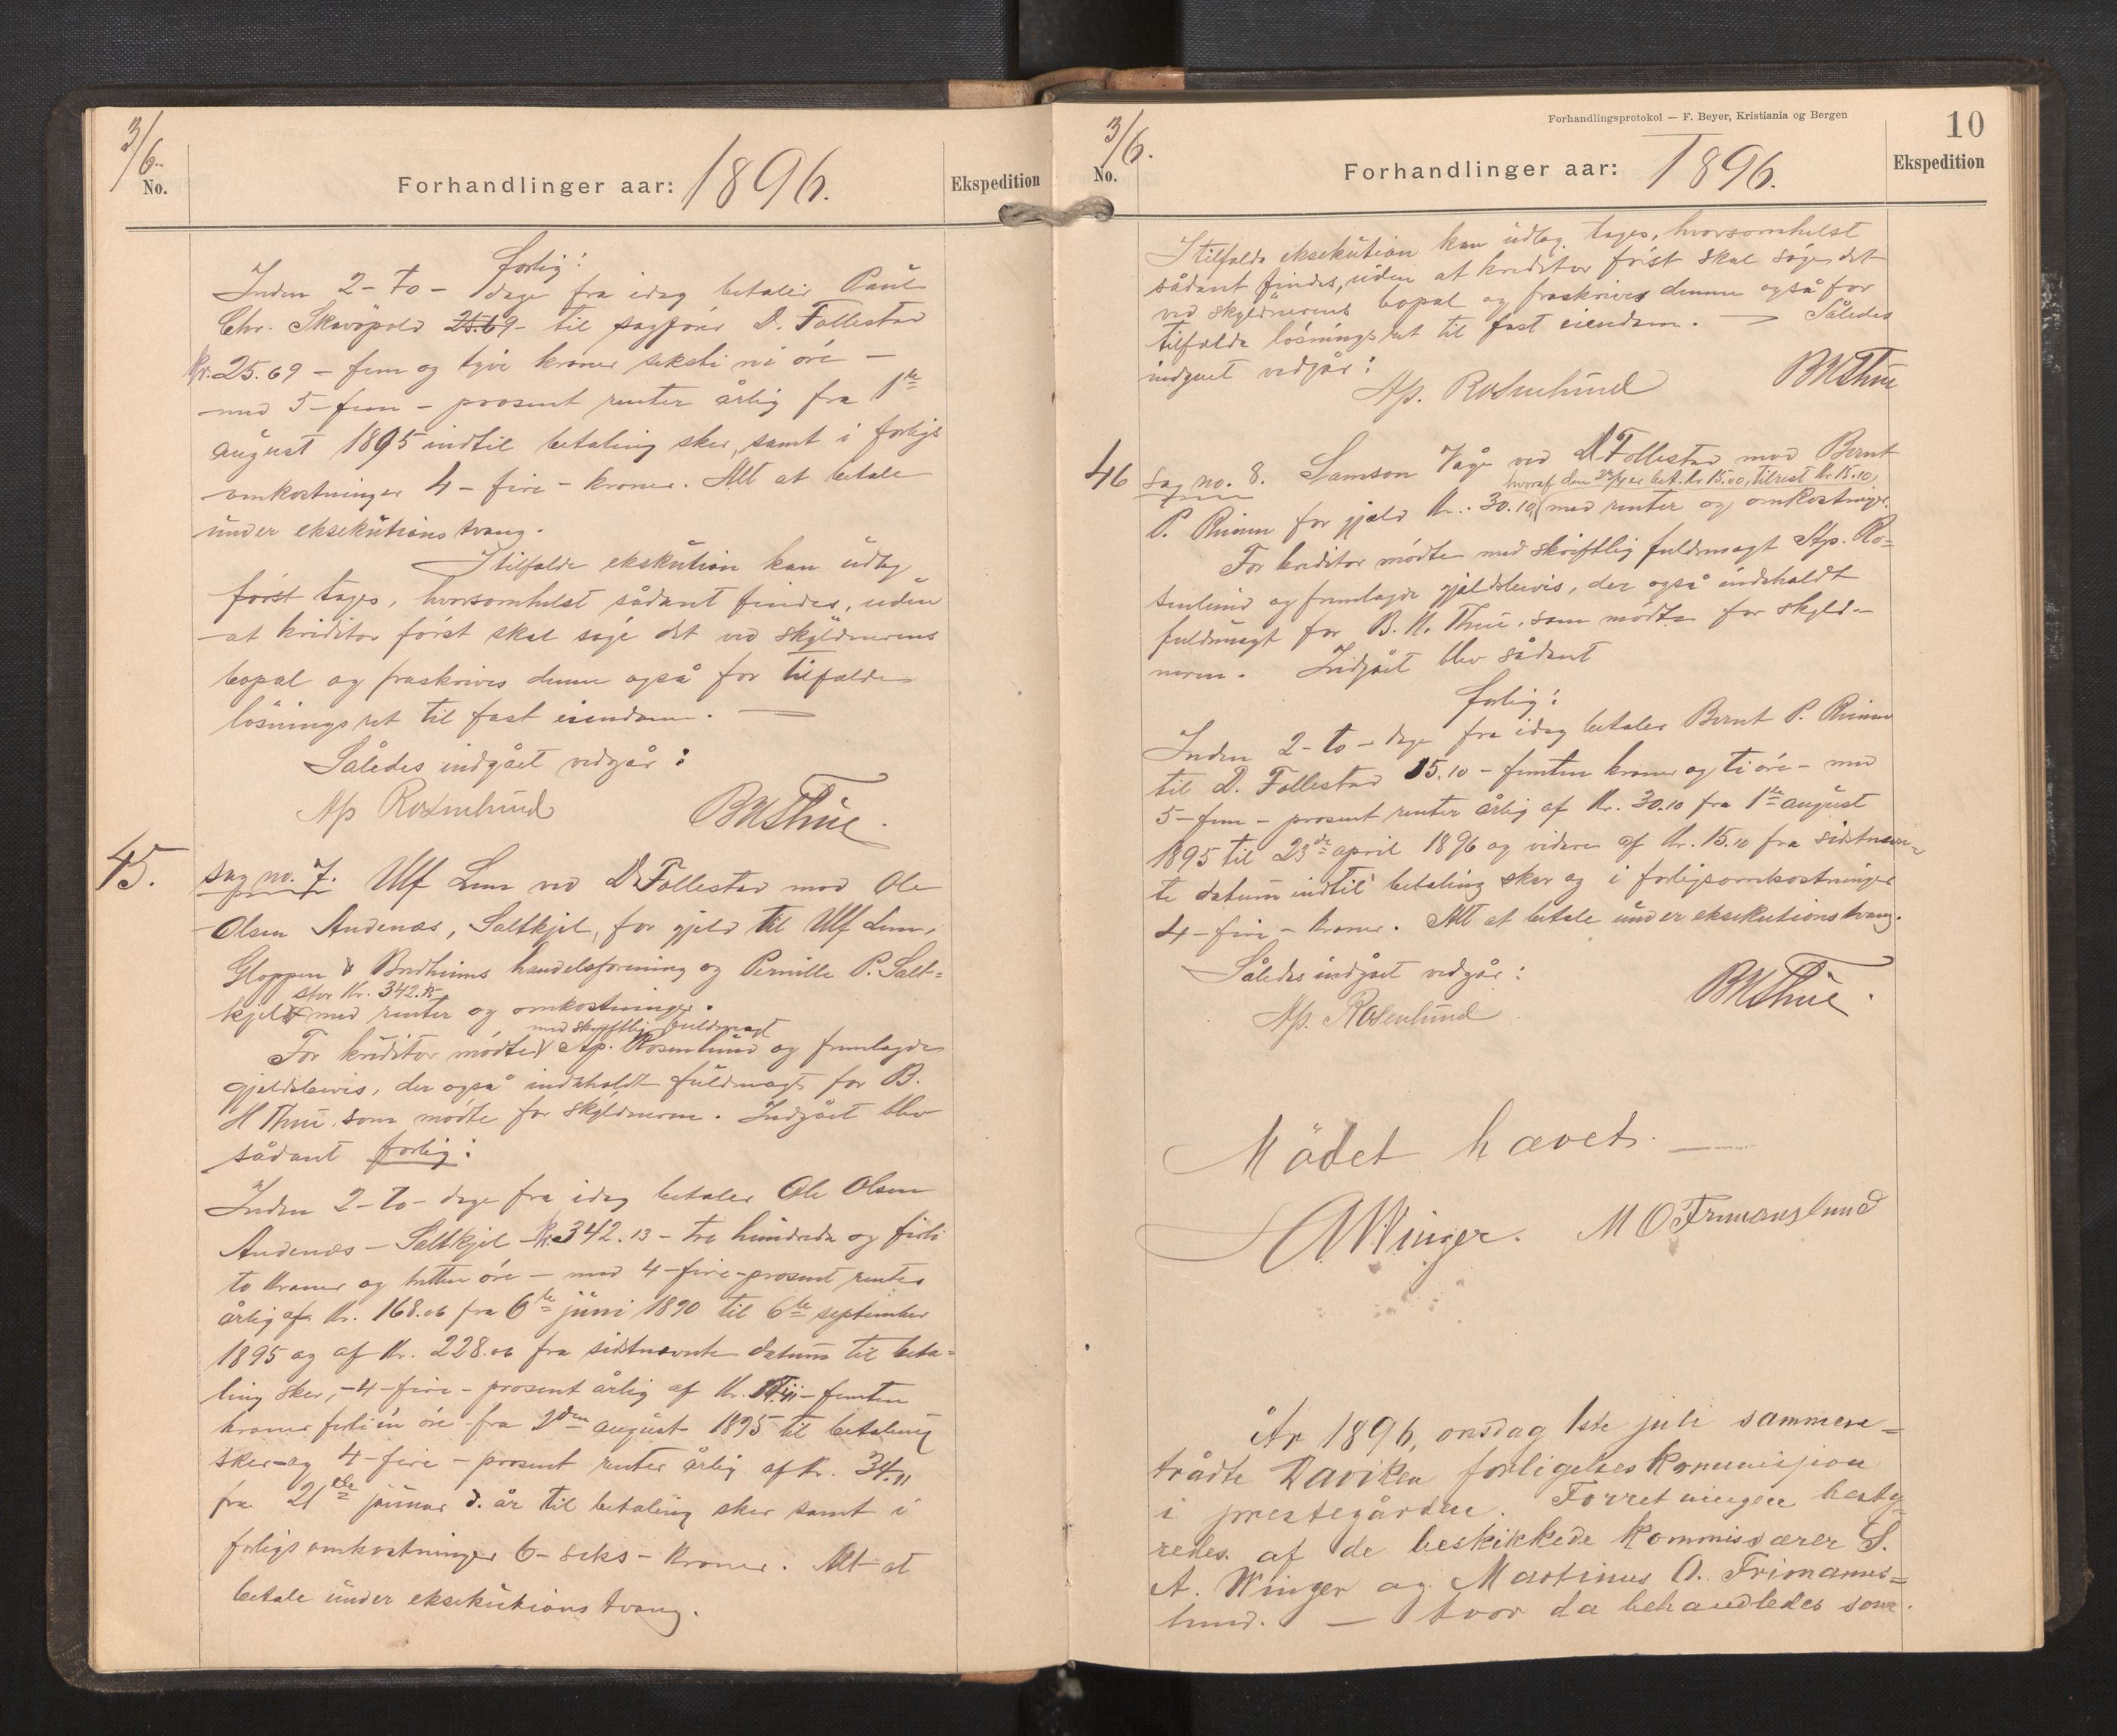 3/6.
No.
Forhandlinger aar: 1896.
Ekspedition
forlig:
Inden 2 - to - dage fra idag betaler Paul
Chr. Skavøpold 25.69 - til sagfører D. Tollestad
Kr. 25.69 - fem og tyve kroner seksti ni øre -
med 5 - fem - prosent renter årlig fra 1ste
august 1895 indtil betaling sker, samt i forligs
omkostninger 4 - fire - kroner. Alt at betale
under eksekutions tvang.
I tilfælde ekskution kan udlæg
først tages, hvorsomhelst sådant findes, uden
at kreditor først skal søge det ved skyldnerens
bopæl og fraskrives denne også for tilfælde
løsningsret til fast eiendom. —
Således indgået vedgår:
Ap Rosenlund BMThue.
45.
Sag no. 7. Ulf Lem ved D. Tollestad mod Ole
Olsen Andenæs, Saltkjel, for gjeld til Ulf Lem,
Gloppen & Bredheims handelsforening og Pernille P. Salt=
stor Kr. 342.13
kjel med renter og omkostninger.
med skriftlig fuldmagt
For kreditor mødte Ap. Rosenlund og fremlagde
gjeldsbevis, der også indeholdt fuldmagt for B.
M Thue, som mødte for skyldneren. Indgået blev
sådant forlig:
Inden 2 - to - dage fra idag betaler Ole Olsen
Andenæs - Saltkjel Kr. 342.13 - tre hundrede og firti
to kroner og tretten øre - med 4 - fire - prosent renter
årlig af Kr. 168.06 fra 6te juni 1890 til 6te september
1895 og af Kr. 228.06 fra sidstnævnte datum til beta=
ling sker, - 4 - fire - prosent årlig af Kr. - femten
kroner firti én øre fra 2den august 1895 til betaling
sker - og 4 - fire - prosent renter årlig af Kr. 34.11
fra 21de januar d. år til betaling sker samt i
forligsomkostninger 6 - seks - kroner. Alt at
betale under eksekutions tvang.
Forhandlingsprotokol — F. Beyer, Kristiania og Bergen
10
3/6.
No.
Forhandlinger aar: 1896.
Ekspedition
I tilfælde eksekution kan udlæg tages, hvorsomhelst
sådant findes, uden at kreditor først skal søge det
ved skyldnerens bopæl og fraskrives denne også for
tilfælde løsningsret til fast eiendom. — Således
indgået vedgår:
Ap. Rosenlund BMThue
46
Sag no. 8. Samson Våge ved D Tollestad mod Bernt
hvoraf den 23/4 er bet. kr 15.00, tilrest Kr 15.10,
P. Rimen for gjæld Kr. 30.10, med renter og omkostninger.
For kreditor mødte med skriftlig fuldmagt Ap. Ro=
senlund og fremlagde gjældsbevis, der også indeholdt
fuldmagt for B. M. Thue, som mødte for skyld-
neren. Indgået blev sådant
forlig:
Inden 2 - to - dage fra idag betaler Bernt P. Rimen
til D. Tollestad 15.10 - femten kroner og ti øre - med
5 - fem - prosent renter årlig af Kr. 30.10 fra 1ste august
1895 til 23de april 1896 og videre af Kr. 15.10 fra sidstnævn=
te datum indtil betaling sker og i forligsomkostninger
4 - fire - kroner. Alt at betale under eksekutions tvang.
Således indgået vedgår:
Ap. Rosenlund BMThue.
Mödet hævet. —
SAWinger. M O Frimanslund
År 1896, onsdag 1ste juli sammen=
trådte Daviken forligelseskommisjion
i prestegården. Forretningen besty=
redes af de beskikkede kommissærer S.
A. Winger og Martinus O. Frimans=
lund. — hvor da behandledes som.